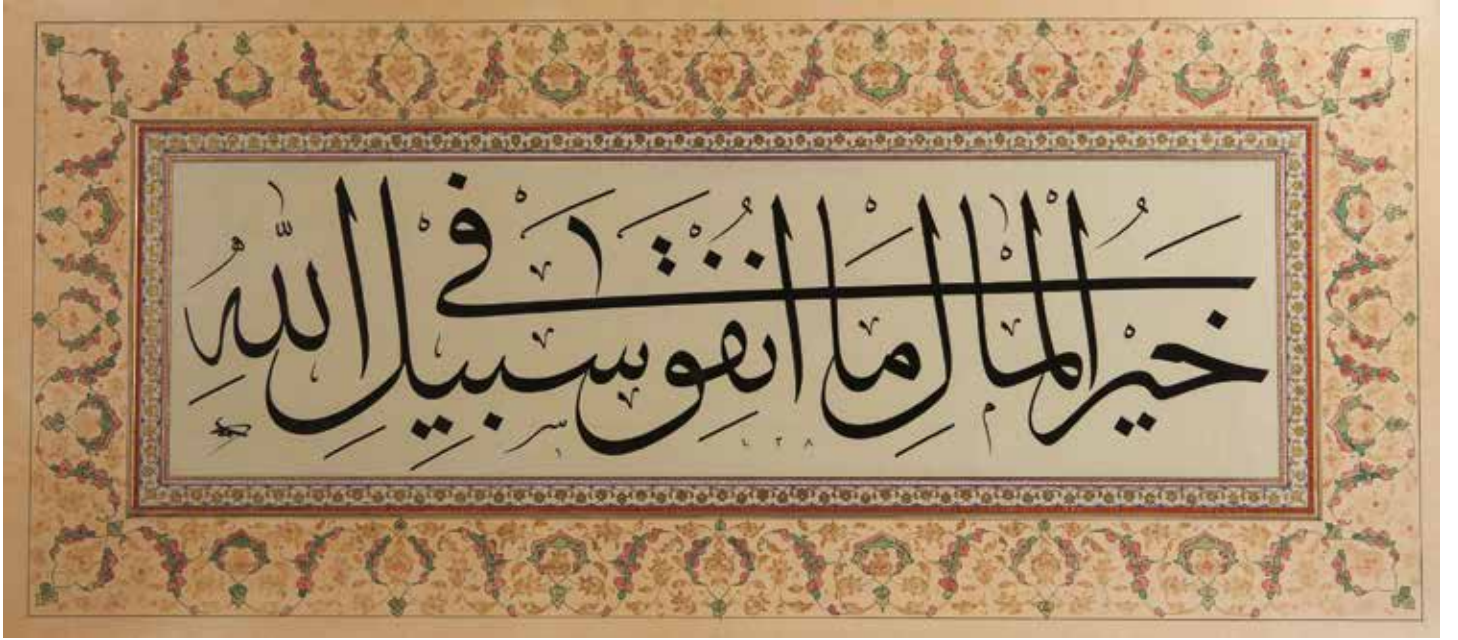 خَيْرُ الْمَالِ مَا اُنْفِقَ فِي سَبِيلِ اللّٰهِ